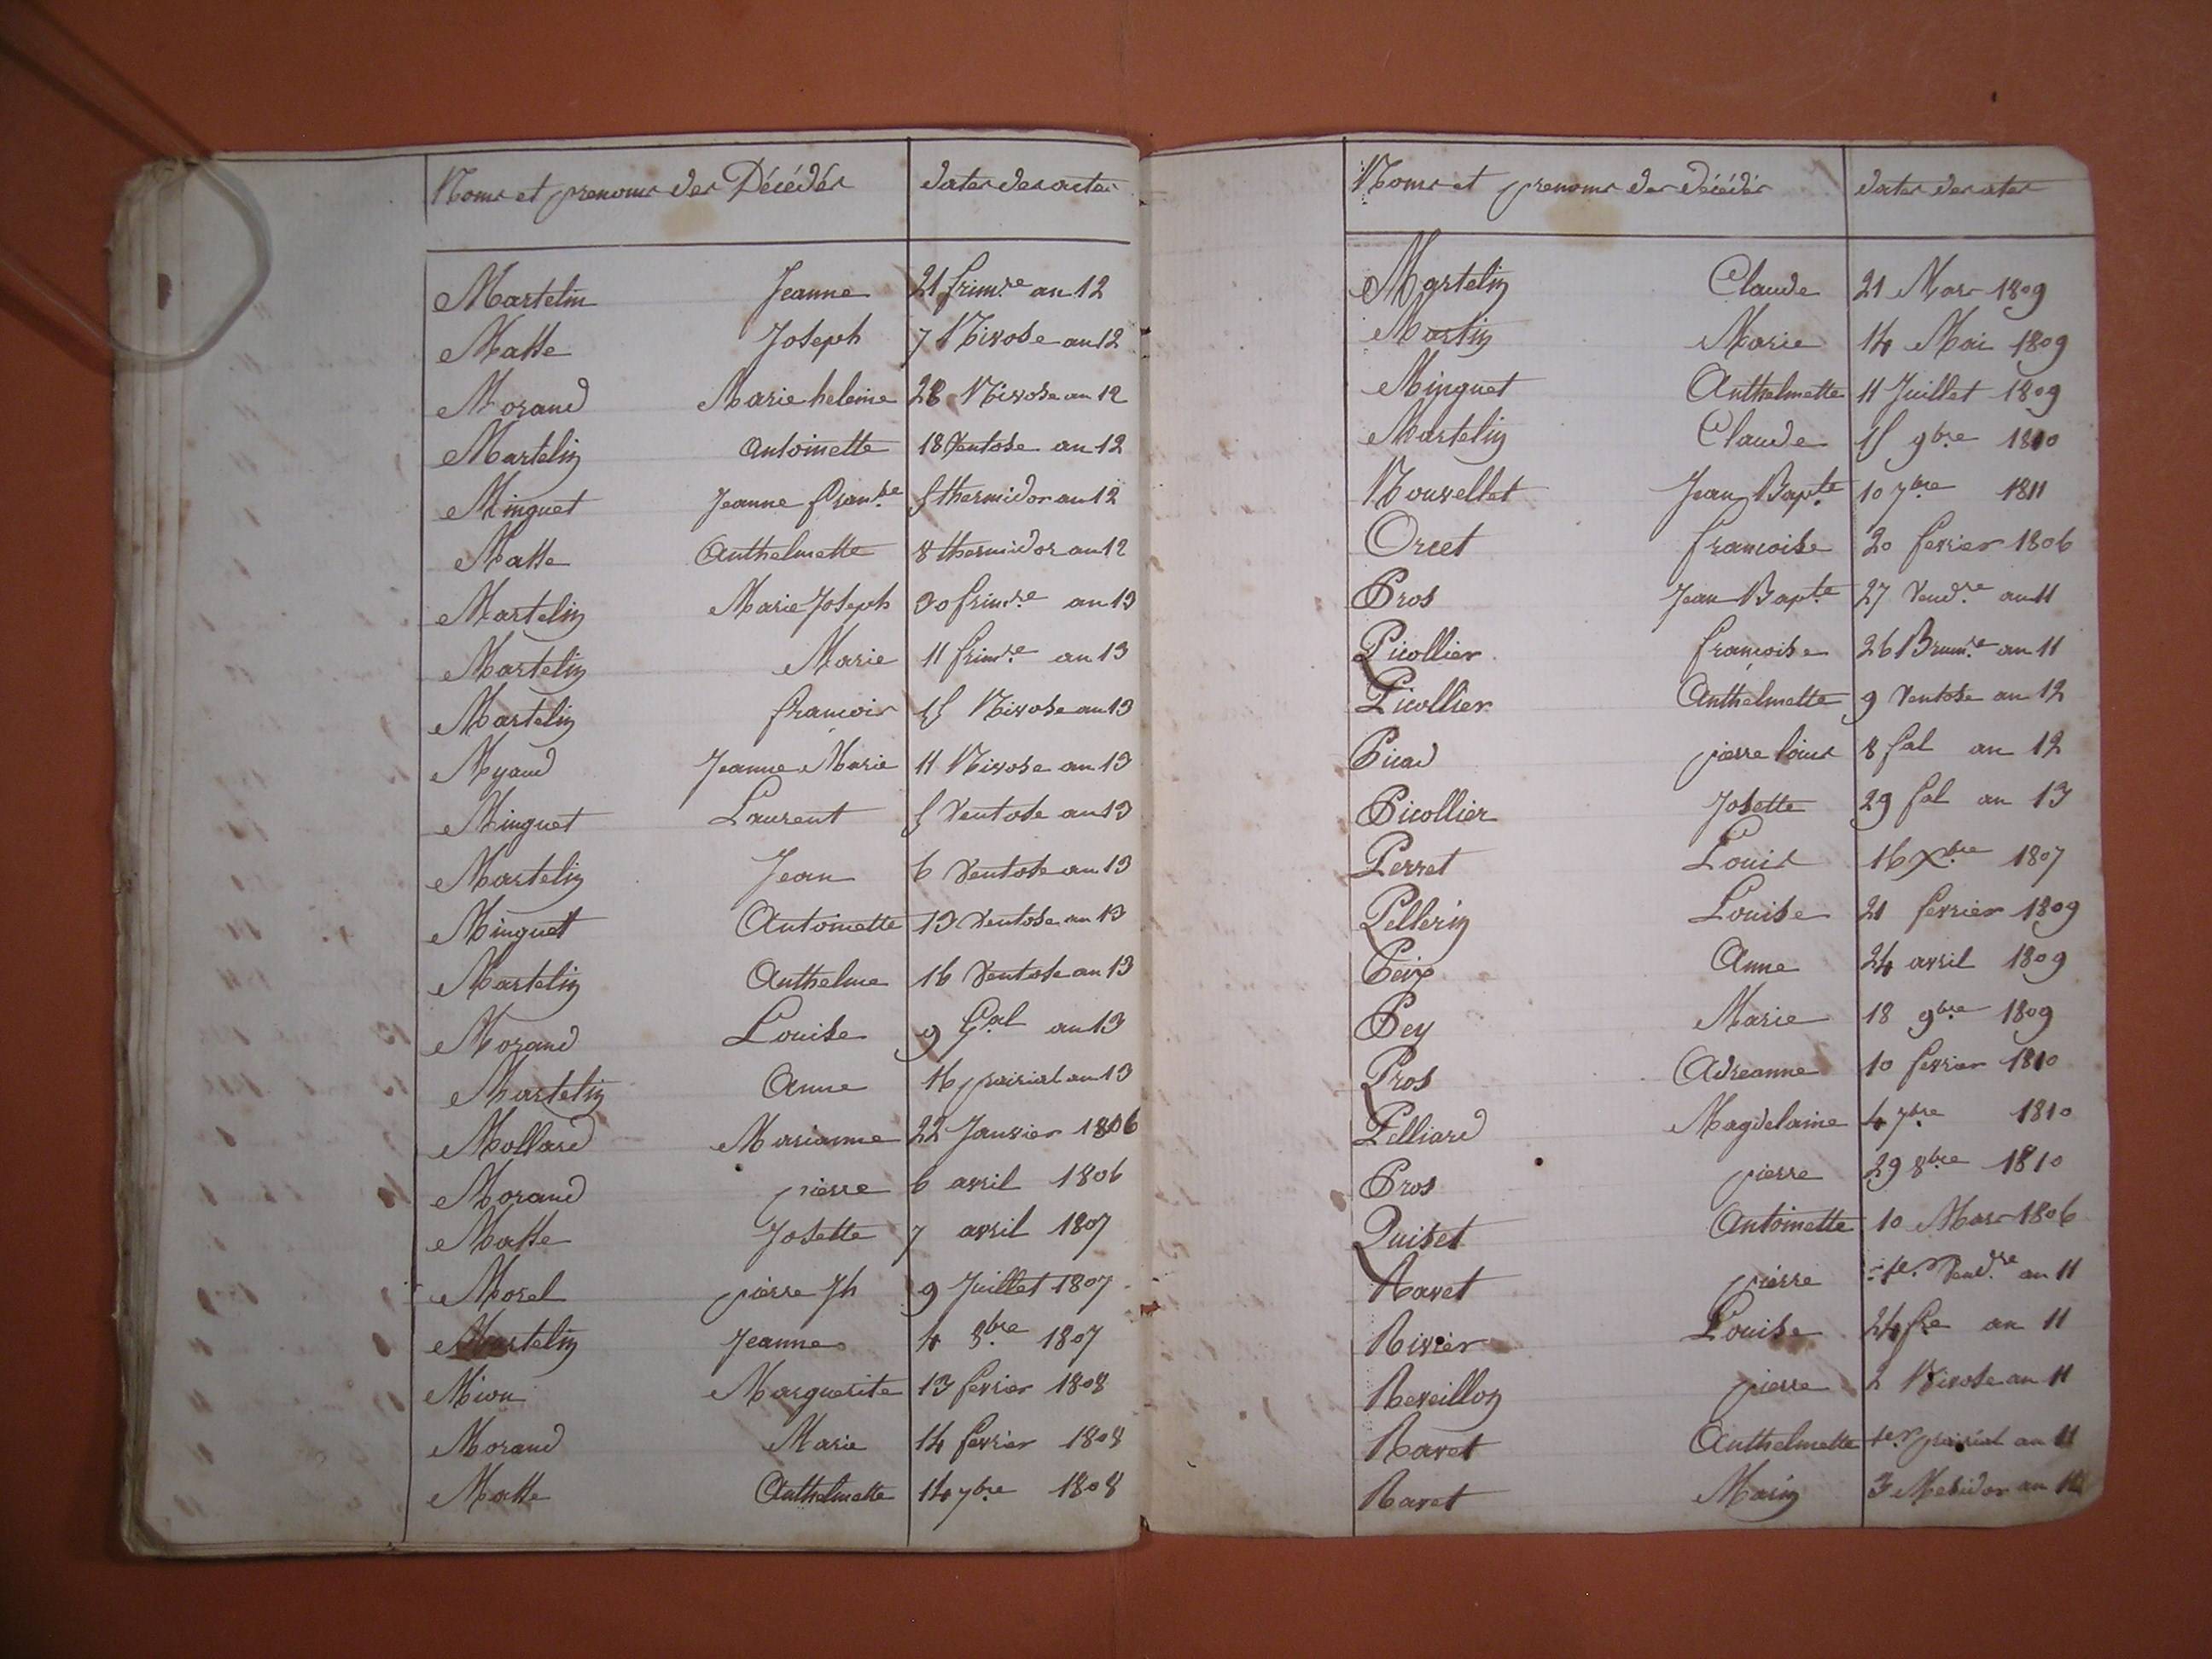 Noms et prenoms des Décédés dates des actes
Martelin Jeanne 21 frimre an 12
Matte Joseph 7 Nivose an 12
Morand Marie heleine 28 Nivose an 12
Martelin Antoinette 18 Ventose an 12
Minguet Jeanne franse 5 thermidor an 12
Matte Anthelmette 8 thermidor an 12
Martelin Marie Joseph 30 frimre an 13
Martelin Marie 11 frimre an 13
Martelin francois 15 Nivose an 13
Myand Jeanne Marie 11 Nivose an 13
Minguet Laurent 5 Ventose an 13
Martelin Jean 6 Ventose an 13
Minguet Antoinette 13 Ventose an 13
Martelin Anthelme 16 Ventose an 13
Morand Louise 9 Gal an 13
Martelin Anne 16 prairial an 13
Mollard Marianne 22 Janvier 1806
Morand pierre 6 avril 1806
Matte Josette 7 avril 1807
Morel pierre Jh 9 Juillet 1807
Martelin Jeanne 4 8bre 1807
Mion Marguerite 13 fevrier 1808
Morand Marie 14 fevrier 1808
Matte Anthelmette 14 7bre 1808
Noms et prenoms des décédés dates des actes
Martelin Claude 21 Mars 1809
Martin Marie 14 Mai 1809
Minguet Anthelmette 11 Juillet 1809
Martelin Claude 15 9bre 1810
Nouvellet Jean Bapte 10 7bre 1811
Orcet francoise 20 fevrier 1806
Pros Jean Bapte 27 Vendre an 11
Picollier francoise 26 Brumre an 11
Picollier Anthelmette 9 Ventose an 12
Picad pierre louis 8 fal an 12
Picollier Josette 29 fal an 13
Perret Louis 16 Xbre 1807
Pellerin Louise 21 fevrier 1809
Peix Anne 24 avril 1809
Pey Marie 18 9bre 1809
Pros Adreanne 10 fevrier 1810
Pelliard Magdelaine 4 7bre 1810
Pros pierre 29 8bre 1810
Quiset Antoinette 10 Mars 1806
Ravet pierre Vendre an 11
Rivier Louise 24 fre an 11
Reveillon pierre 2 Nivose an 11
Ravet Anthelmette 1er prairial an 11
Ravet Marin 3 Mesidor an 11